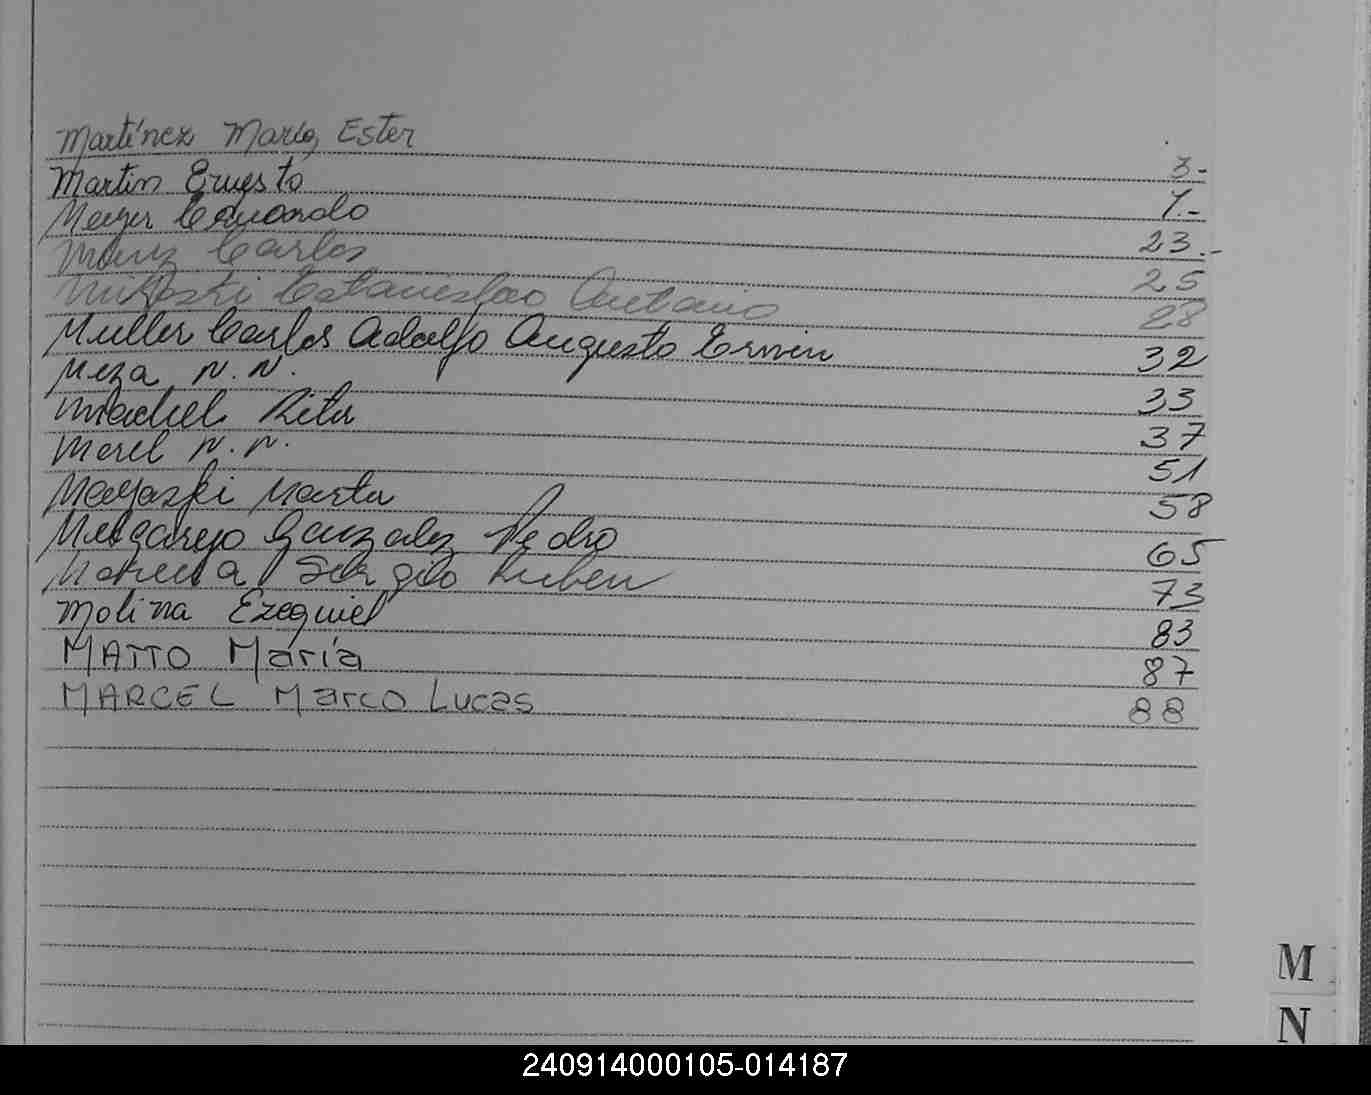 Martínez María Ester 3.-
Martin Ernesto 7.-
Meyer Eduardo 23.-
Munz Carlos 25
Estanislao Antonio 28
Muller Carlos Adolfo Augusto Erwin 32
Meza N.N. 33
Machel Rita 37
Morel N.N. 51
Mayaski Marta 58
Melgarejo Gonzalez Pedro 65
Sergio Ruben 73
Molina Ezequiel 83
MATTO María 87
MARCEL Marco Lucas 88
M
N
240914000105-014187